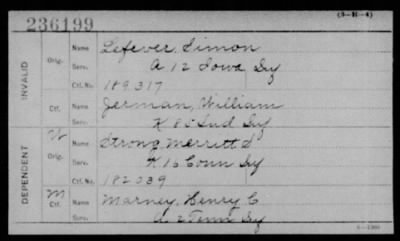 236199
(3-H-4)
INVALID
Orig. Name Lefever, Simon
Serv. A 12 Iowa Inf
Ctf. No. 189317
Ctf. Name Jerman, William
Serv. K 85 Ind Inf
DEPENDENT
W Orig. Name Strong, Merritt D
Serv. K 16 Conn Inf
Ctf. No. 182039
M Ctf. Name Marney, Henry C
Serv. A 2 Tenn Inf